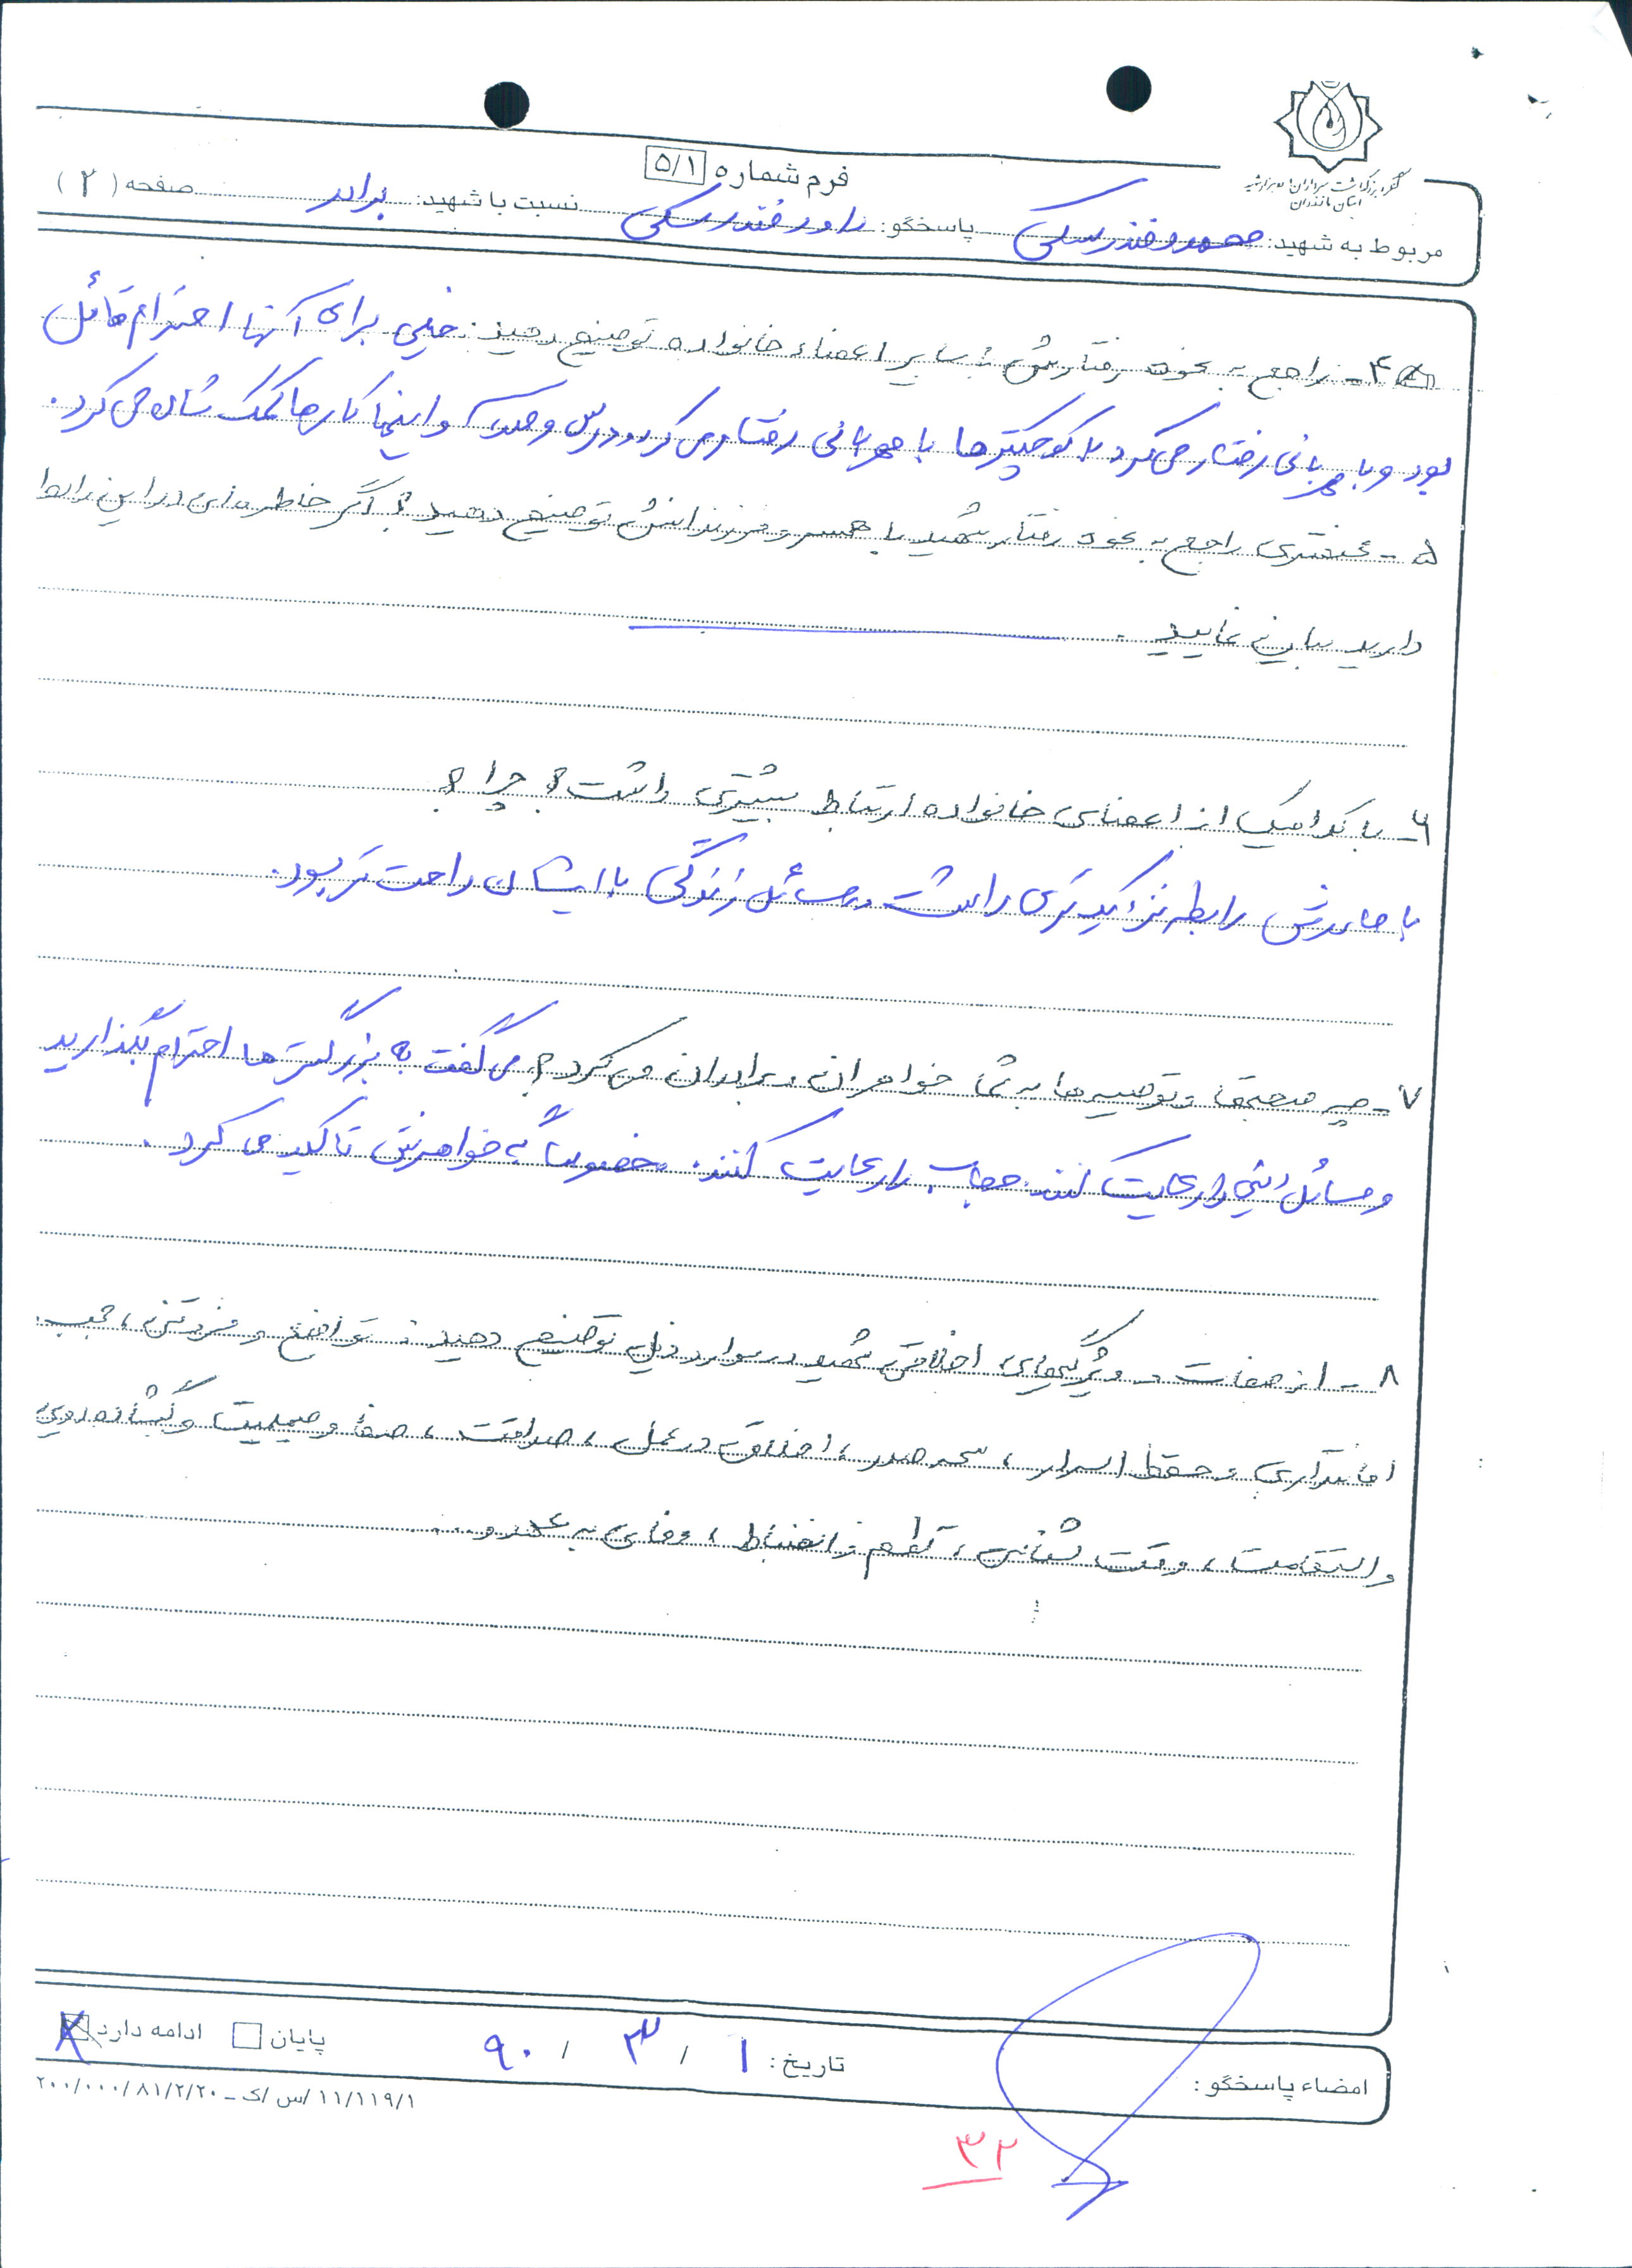 کنگره بزرگداشت سرداران و ده هزار شهید
استان مازندران
فرم شماره ۵/۱
مربوط به شهید: محمود فندرسکی پاسخگو: داود فندرسکی نسبت با شهید: برادر صفحه (۲)
۴- راجع به نحوه رفتارش با سایر اعضاء خانواده توضیح دهید: خیلی برای آنها احترام قائل
بود و با مهربانی رفتار می کرد با کوچکترها با مهربانی رفتار می کرد و درس و مدرسه و اینجا کارها کمک شان می کرد.
۵- مختصری راجع به نحوه رفتار شهید با همسر و فرزندانش توضیح دهید؟ اگر خاطره ای در این رابطه
دارید بیان نمایید.
۶- با کدامیک از اعضای خانواده ارتباط بیشتری داشت؟ چرا؟
با مادرش رابطه نزدیک تری داشت و مسائل زندگی با ایشان راحت تر بود.
۷- چه صحبتها و توصیه ها به شما خواهران و برادران می کرد؟ می گفت به بزرگترها احترام بگذارید
و مسائل دینی را رعایت کنند. حجاب را رعایت کنند. مخصوصاً به خواهرش تاکید می کرد.
۸- از صفات و ویژگیهای اخلاقی شهید در موارد ذیل توضیح دهید: تواضع و فروتنی،
امانتداری و حفظ اسرار، سعه صدر، اخلاق در عمل، صداقت، صفا و صمیمیت و گشاده رویی
و استقامت، وقت شناسی، نظم و انضباط، وفای به عهد و ...
امضاء پاسخگو: تاریخ: ۱ / ۳ / ۹۰ پایان ادامه دارد
۱۱/۱۱۹/۱ /س /ک - ۲۰۰/۰۰۰/۸۱/۲/۲۰
۳۲